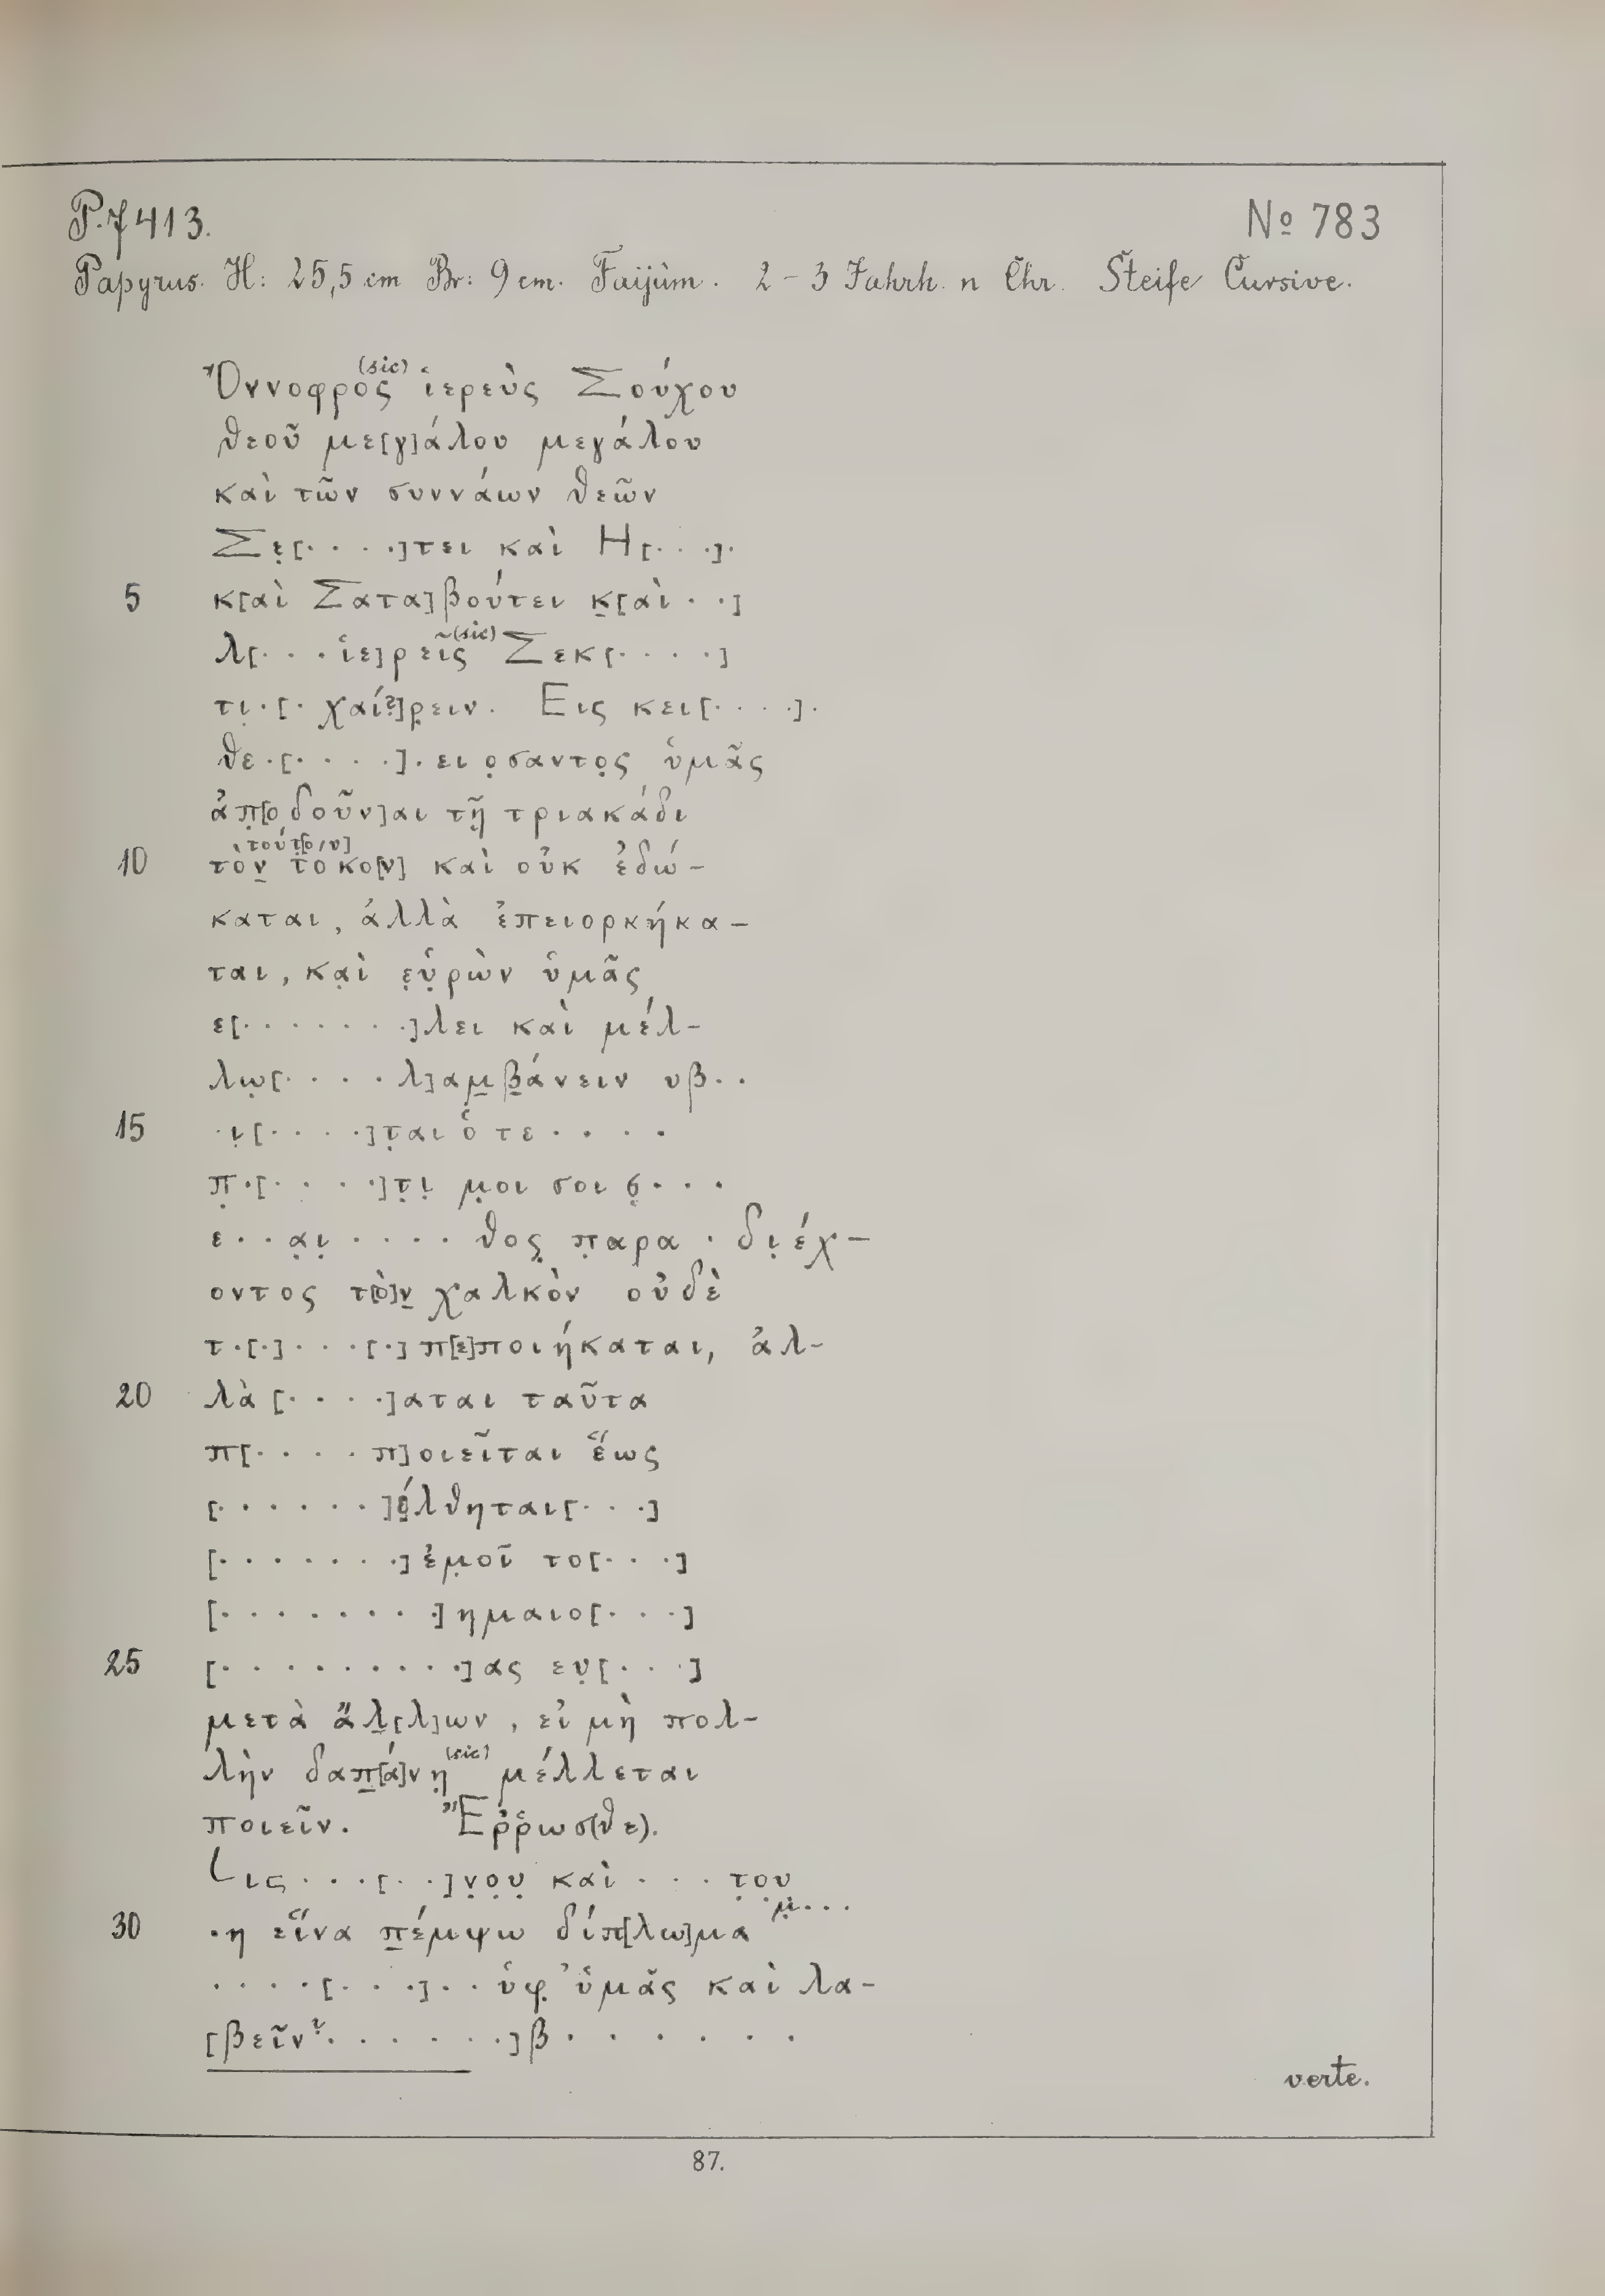 P. 7413.
№ 783
Papyrus. H: 25,5 cm Br: 9 cm. Faijûm. 2 – 3 Jahrh. n Chr. Steife Cursive.
Ὀννοφρὸς (sic) ἱερεὺς Σούχου
θεοῦ με[γ]άλου μεγάλου
καὶ τῶν συννάων θεῶν
Σε̣[· · · ·]τει καὶ Η[· · ·]·
5 κ[αὶ Σατα]βούτει κ̣[αὶ · ·]
λ[· · · ἱε]ρεῖς (sic) Σεκ[· · · · ·]
τι̣·[· χαί?]ρ̣ειν. Εις κει[· · · ·]·
θε·[· · · ·]·ει ο̣σαντο̣ς ὑμᾶς
ἀπ̣[οδοῦν]αι τῇ τριακάδι
τούτ̣[ο(ν)]
10 τὸν̣ τοκο[ν] καὶ οὐκ ἐδώ-
καται, ἀλλὰ ἐπειορκήκα-
ται, κα̣ὶ ε̣ὑ̣ρὼν ὑμᾶς
ε[· · · · · · ·]λει καὶ μέλ-
λω̣[· · · · λ]αμ̣β̣άνειν υβ··
15 ·ι̣[· · · ·]τ̣αι ὁ τε · · · ·
π̣·[· · · ·]τ̣ι̣ μ̣οι σοι ϭ̣· · ·
ε· ·α̣ι̣ · · · · θος̣ π̣αρα · δι̣έχ-
οντος τ[ὸ]ν̣ χαλκὸν οὐδὲ
τ·[·]· · ·[·] π[ε]ποιήκαται, ἀλ-
20 λὰ [· · · ·]αται ταῦτα
π[· · · · π]οιεῖται ἕως
[· · · · · ·]έ̣λθηται[· · ·]
[· · · · · · ·] ἐμ̣οῖ το[· · ·]
[· · · · · · · ·] ημαιο[· · ·]
25 [· · · · · · · · ·]ας ευ̣[· · ·]
μετὰ ἄλ̣[λ]ων, εἰ μὴ πολ-
λὴν δαπ̣[ά]νη̣ (sic) μέλλεται
ποιεῖν. Ἔῤῥωσ(θε).
𐅹 ις · · ·[· ·]ν̣ο̣υ̣ καὶ · · · τ̣ο̣υ
·μ̣···
30 ·η εἵνα π̣έμψω δίπ[λω]μα
· · · ·[· · ·]· · ὑφ̣’ ὑμᾶς καὶ λα-
[βεῖν?· · · · · ·]β· · · · · ·
verte.
87.